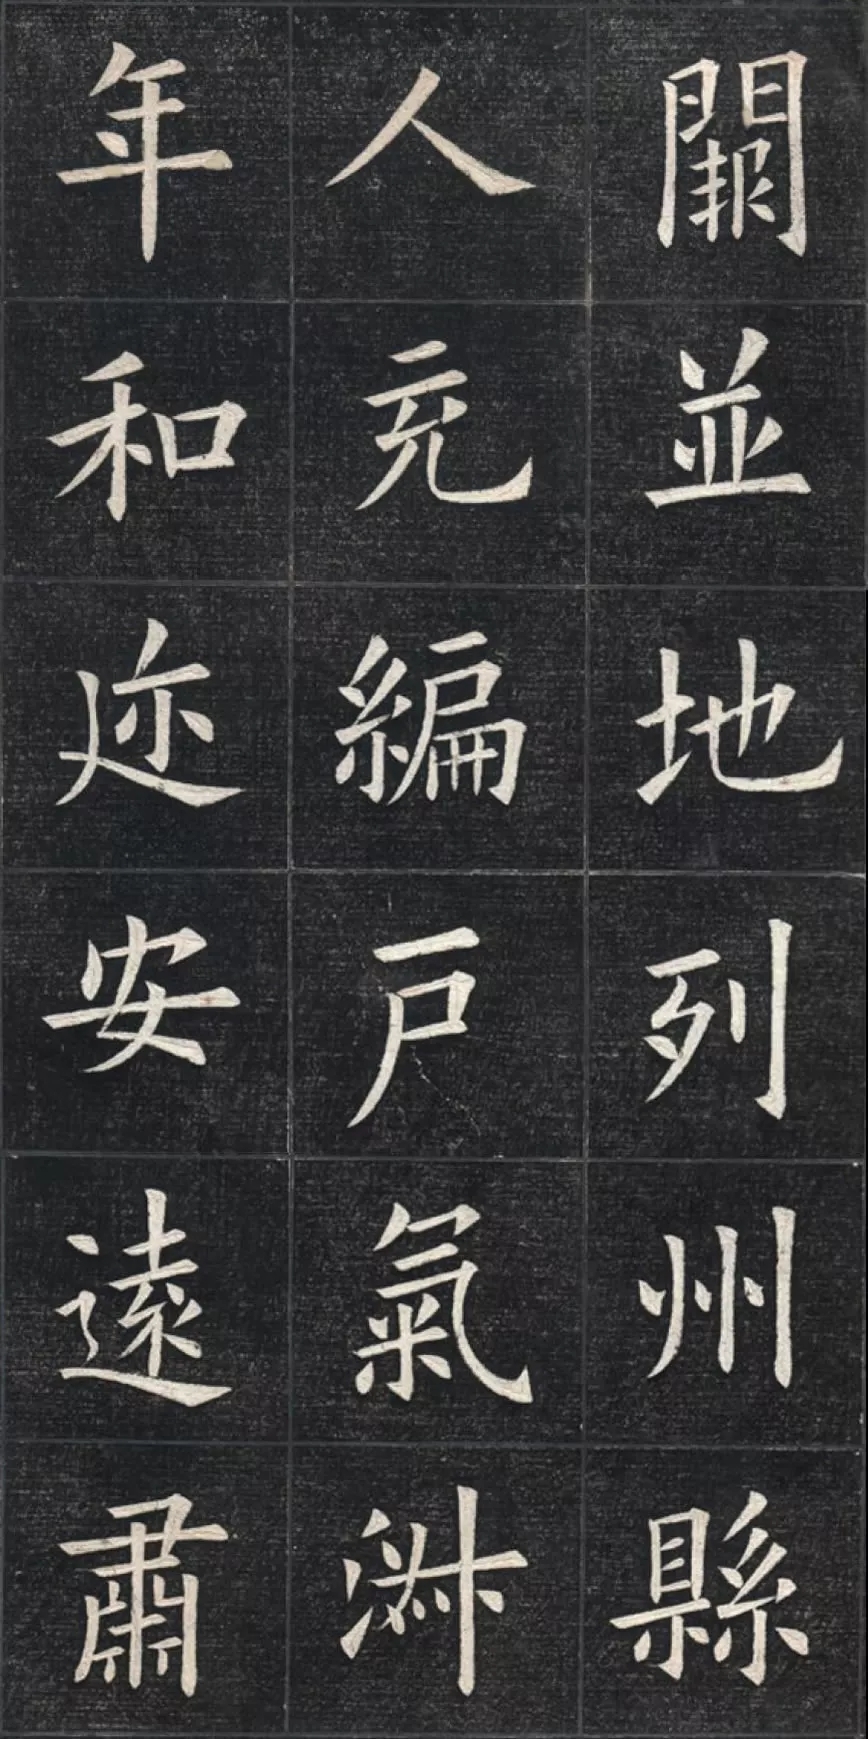 闕並地列州縣
人充編戶氣淑
年和迩安遠肅